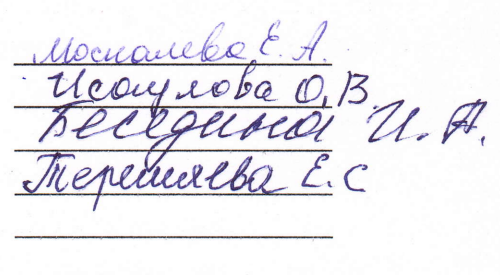 Москалева Е. А.
Исаулова О. В.
Беседина И. А.
Терешяева Е. С